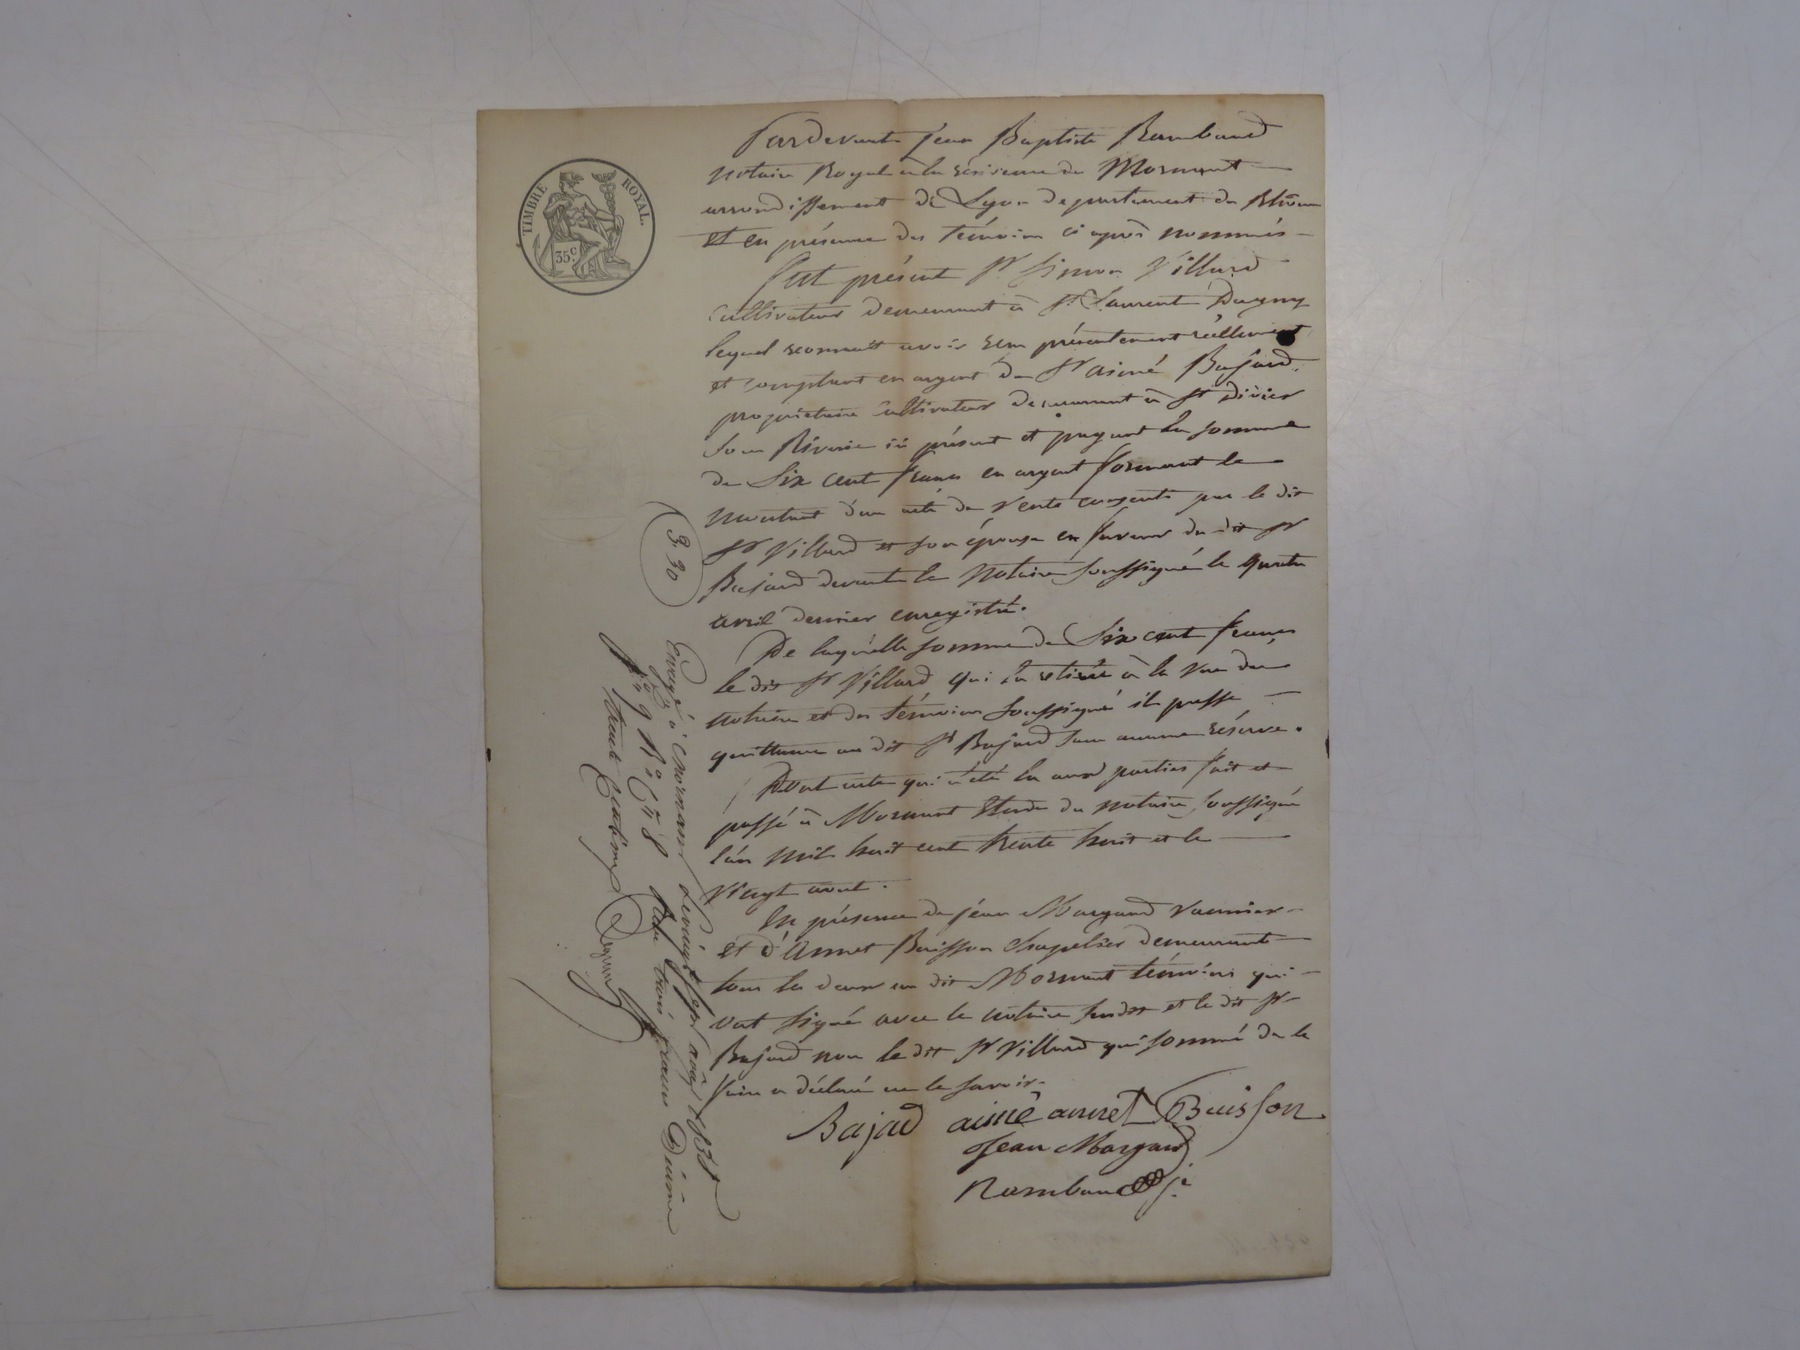 TIMBRE ROYAL
35 c.
Pardevant Jean Baptiste Rambaud
notaire Royal à la résidence de Mornant
arrondissement de Lyon departement du Rhône
et en présence des témoins ci après nommés
fut présent Sr. Simon Villard
Cultivateur demeurant à St. Laurent Dagny
lequel reconnait avoir reçu présentement réellement
et comptant en argent de Sr aimé Bajard
propriétaire Cultivateur demeurant à St Didier
sous Riverie ici présent et payant la somme
de Six cent francs en argent formant le
montant d'un acte de vente consenti par le dit
Sr Villard et son épouse en faveur du dit Sr
Bajard devant le Notaire soussigné le quatre
avril dernier enregistré.
De laquelle somme de Six cent francs
le dit Sr Villard qui l'a retirée à la vue du
notaire et des témoins soussigné il passe
quittance au dit Sr Bajard sans aucune réserve.
Dont acte qui a été lu aux parties fait et
passé à Mornant Etude du notaire soussigné
l'an mil huit cent trente huit et le
vingt aout.
En présence de jean Margand
et d'Annet Buisson chapelier demeurant
tous les deux au dit Mornant témoins qui
ont signé avec le notaire susdit et le dit Sr
Bajard non le dit Sr Villard qui sommé de le
faire a déclaré ne le savoir.
Bajad aimé annet Buisson
Jean Margand
Rambaud
3. 30
Enregé à mornant le vingt sept août 1838
fo 9 Ro Cse 8 reçu trois francs Décime
trente Centimes